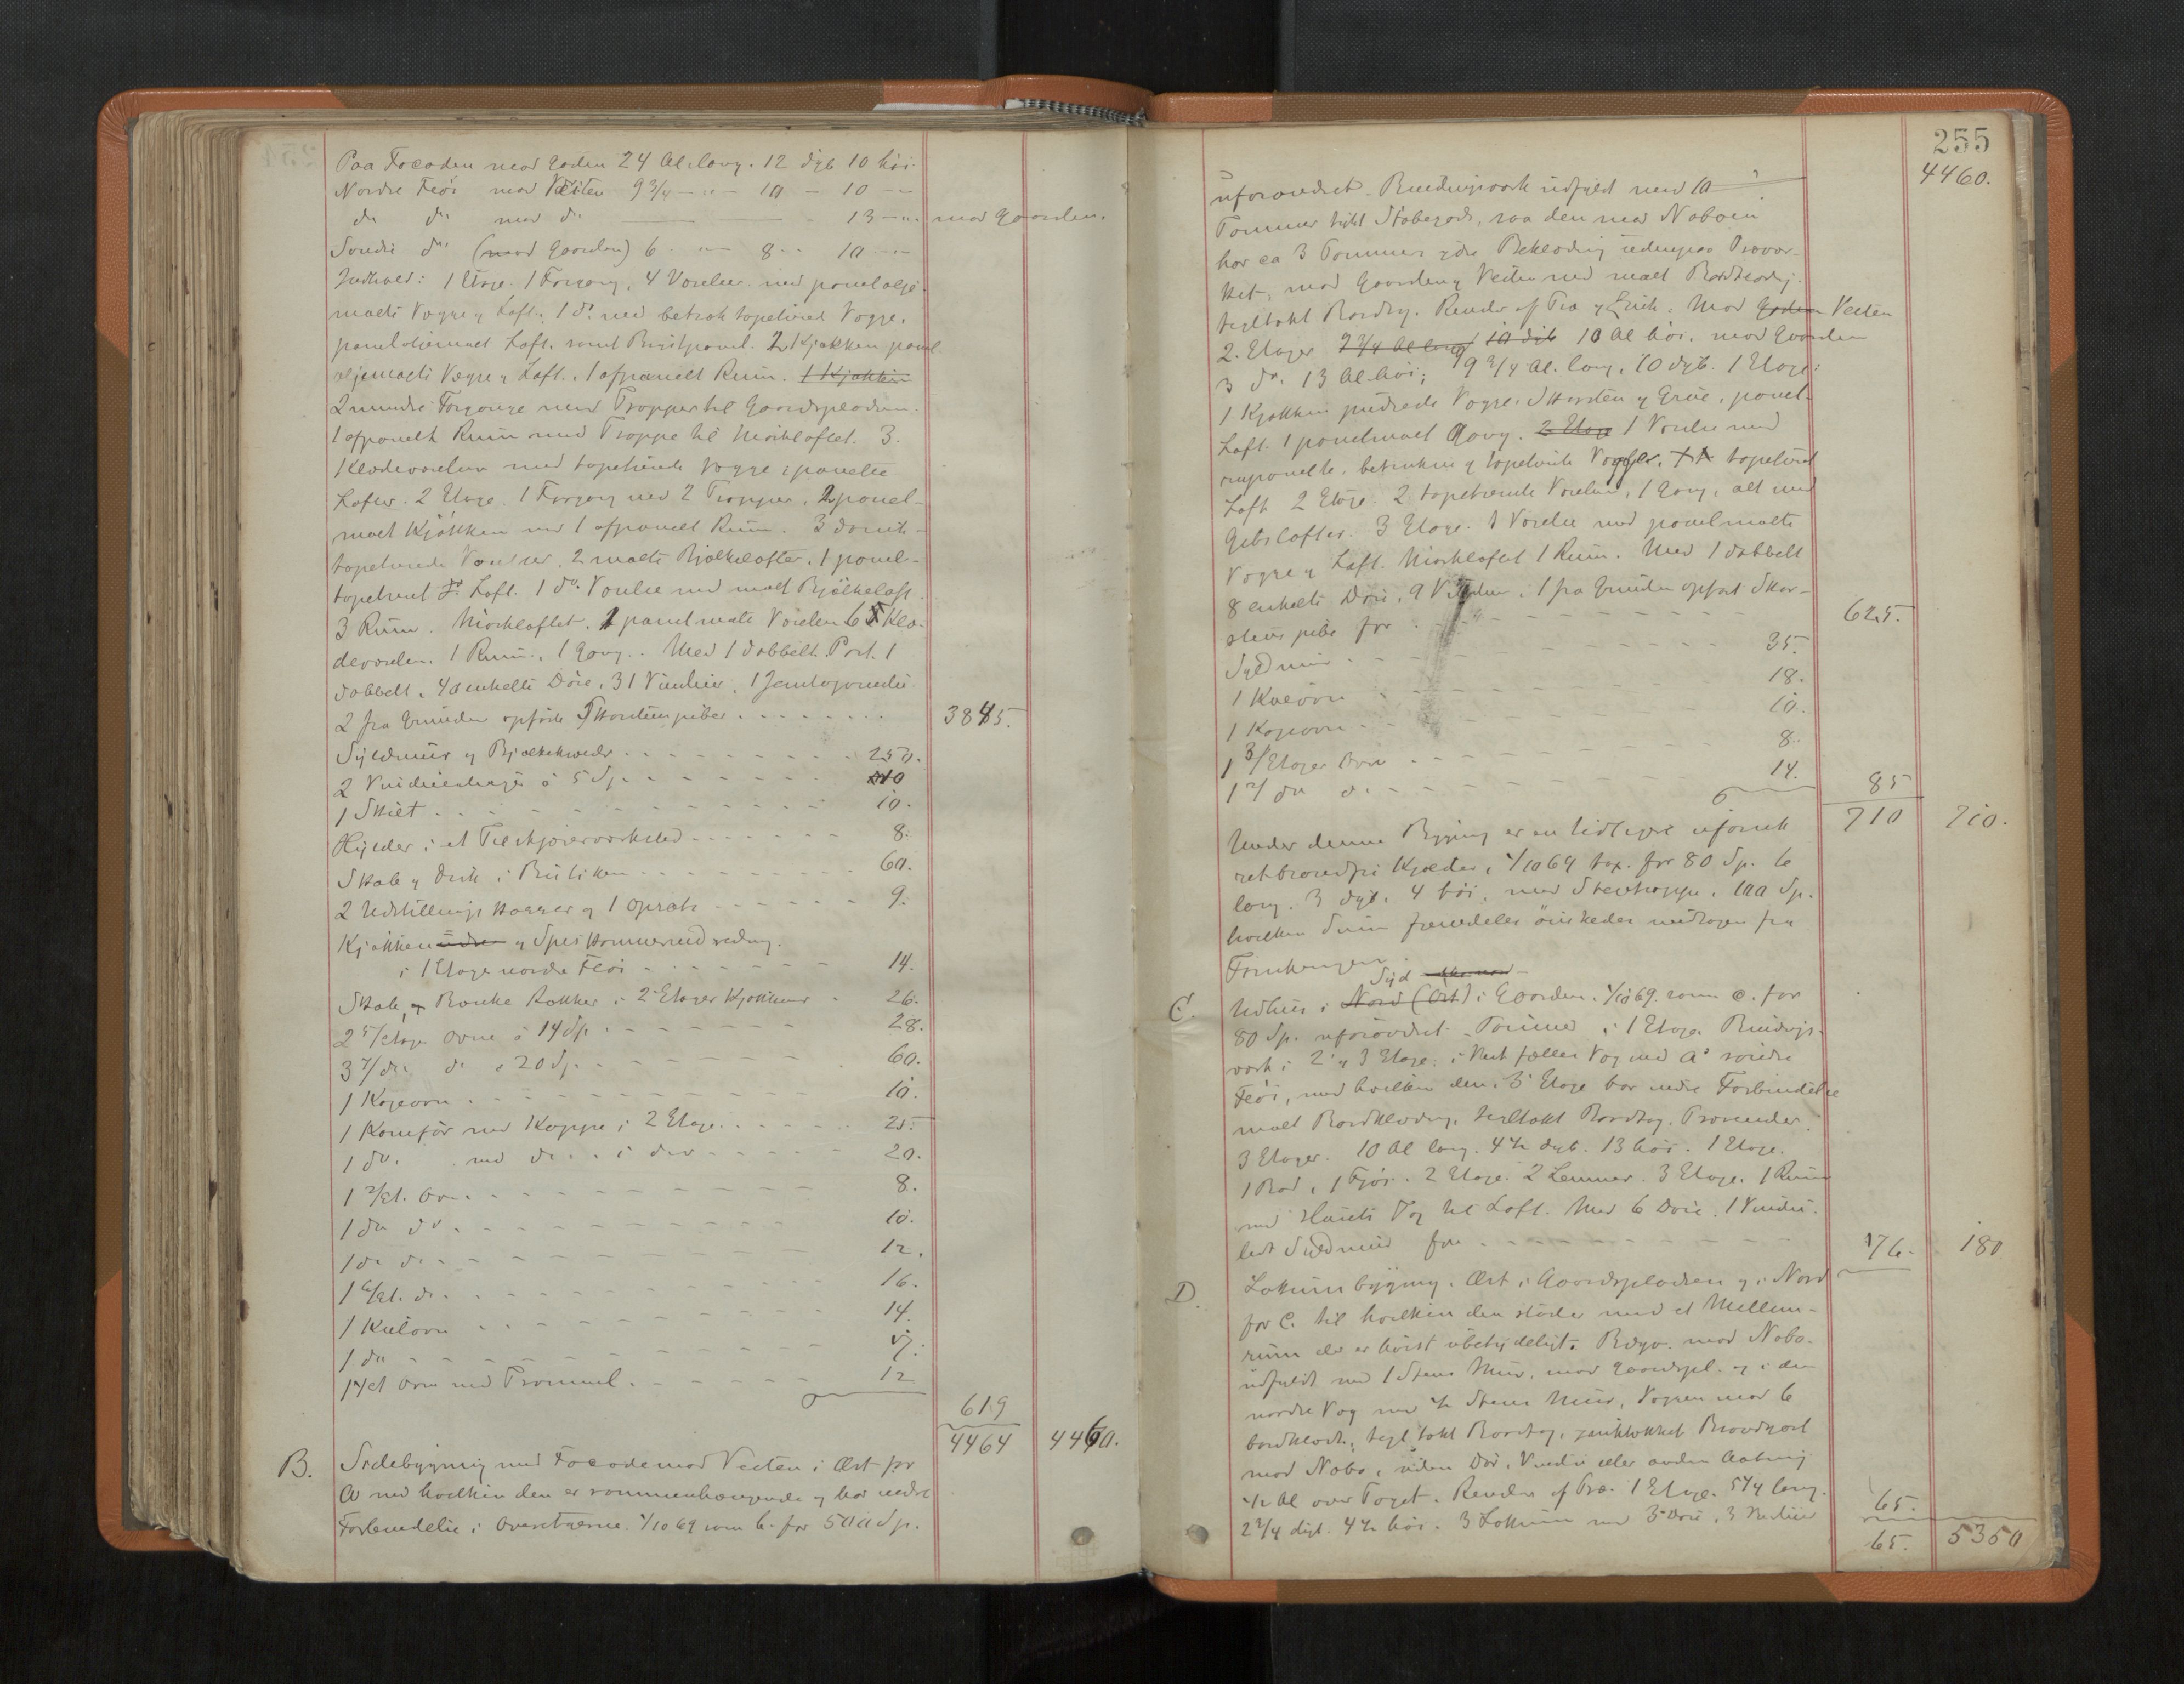 Paa Facaden mod Gaden 24 Al. lang. 12 dyb 10 höi.
Nordre Flöi mod Vesten 9 3/4 — „ — 10 — 10 — —
do do mod do — — 13 — „ mod Gaarden.
Søndre do (mod Gaarden) 6 „ — 8 - - 10 — „ —
Indhold: 1 Etage. 1 Forgang, 4 Værelser med panel olje-
malte Vægge og Loft. 1 do med betrak tapetseret Vægge,
panel oljemalt Loft, samt Brystpanel. 2 Kjøkken panel
oljemalte Vægge og Loft. 1 afpanelt Rum. 1 Kjøkken
2 mindre Forgange med Trapper til Gaardspladsen.
1 afpanelt Rum med Trappe til Mørkloftet. 3.
1 Klædeværelse med tapetserede Vægge i panelte
Lofter. 2 Etage. 1 Forgang med 2 Trapper, 2 panel-
malt Kjøkken med 1 afpanelt Rum. 3
tapetserede Værelser, 2 malte Bjælkelofter. 1 panel-
tapetseret do Loft. 1 do Værelse med malt Bjælkeloft
3 Rum. Mørkloftet. 1 panel malte Værelse 6 Klæ-
deværelser. 1 Rum, 1 Gang. Med 1 dobbelt Port. 1
dobbelt, 40 enkelte Døre, 31 Vinduer,
2 fra Grunden opførte Skorstenspiber . . . . . . . 3845.
Syldmur og Bjælkekwede . . . . . . 250.
2 à 5 Sp. . . . . . . 10
1 Skilt . . . . . . 10.
Hylder i et . . . . . . 8.
Skab og Disk i Butiken . . . . . . 60.
2 Udstillings og 1 Opsats . . . . . . 9.
Kjøkken og Spiskammerindredning
i 1 Etage nordre Fløi . . . . . . 14.
Skab, Benke Rækker i 2 Etages Kjøkkener . 26.
2 5/etage Ovne à 14 Sp. . . . . . . 28.
3 7/do do à 20 Sp. . . . . . . 60.
1 Kogeovn . . . . . . 10.
1 Komfür med Kappe i 2 Etage . . . . . . 25.
1 do. med do. . i do . . . . . . 20.
1 2/et. Ovn . . . . . . 8.
1 do do . . . . . . 10.
1 do do . . . . . . 12.
1 6/et. do. . . . . . . 16.
1 Kulovn . . . . . . 14.
1 do . . . . . . 7.
Ovn med Trommel . . . . . . 12
619
4464 4460.
B. Sidebygning med Facade mod Vesten i Øst for
A med hvilken den er sammenhængende og har indre
Forbindelse i Overetagerne. 1/10 69 som b. for 500 Sp.
255
4460.
uforandret. Bindingsværk udfyldt med 10
Tommer tykt Støbegods, saa den mod Naboen
har ca 3 Tommer ydre Beklædning udenpaa Trævær-
ket, mod Gaarden og Vesten med malt Bordklædng.
tegltakt Bordtag. Render af Træ og Zink. Mod Gaden Vesten
2. Etager 9 3/4 Al lang 10 dyb 10 Al höi. mod Gaarden
3 do. 13 Al. höi; 9 3/4 Al. lang, 10 dyb. 1 Etage:
1 Kjøkken pudsede Vægge, Skorsten og Grue, panel-
Loft. 1 panelmalt Gang. 2 Etage 1 Værelse med
panelte, betrukne og tapetserte Vægge, tapetseret
Loft 2 Etage. 2 tapetserede Værelser, 1 Gang, alt med
Gibslofter. 3 Etage. 1 Værelse med panelmalte
Vægge og Loft. Mørkloftet 1 Rum. Med 1 dobbelt
8 enkelte Døre, 9 Vinduer, 1 fra Grunden opført Skor-
stens pibe for . . . . . . 625.
Syldmur . . . . . . 35.
1 Kulovn . . . . . . 18.
1 Kogeovn . . . . . . 10.
1 3/Etages Ovn . . . . . . 8.
1 2/ do do . . . . . . 14. 85
710 710.
Under denne Bygning er en tidligere uforsik-
ret brandfri Kjælder, 1/10 69 tax. for 80 Sp. 6
lang. 3 dyb, 4 höi, med Stentrappe, 100 Sp.
hvilken Sum fremdeles ønskedes undtagen fra
Forsikringen.
C. Udhus i Nord (Øst) Syd i Gaarden. 1/10 69. som c. for
80 Sp. uforandret. Tømmer i 1 Etage Bindings-
værk i 2 og 3 Etage; i Vest fælles Væg med A's søndre
Fløi, med hvilken den i 3 Etage har indre Forbindelse
malt Bordklædng, tegltakt Bordtag, Trærender.
3 Etager. 10 Al lang. 4 1/2 dyb. 13 höi. 1 Etage.
1 Bod, 1 Fjøs. 2 Etage. 2 Lemmer. 3 Etage. 1 Rum
med Husets Tag til Loft. Med 6 Døre. 1 Vindu.
lidt Syldmur for . . . . . . 176. 180
D. Lokumbygning. Øst i Gaardspladsen og i Nord
for C. til hvilken den støder med et Mellem-
rum der er höist ubetydeligt. Bdgv. mod Nabo-
udfyldt med 1 Stens Mur, mod Gaardspl. og i den
nordre Væg med 1/2 Stens Mur, Væggen mod C
bordklædt, tegltakt Bordtag, zinktækket Brandgavl
mod Nabo, uden Dør, Vindu eller anden Aabning
1/2 Al over Taget. Render af Træ. 1 Etage. 5 1/4 lang.
2 3/4 dyb. 4 1/2 höi. 3 Lokum med 3 Døre, 3 Vinduer 65.
65. 5350